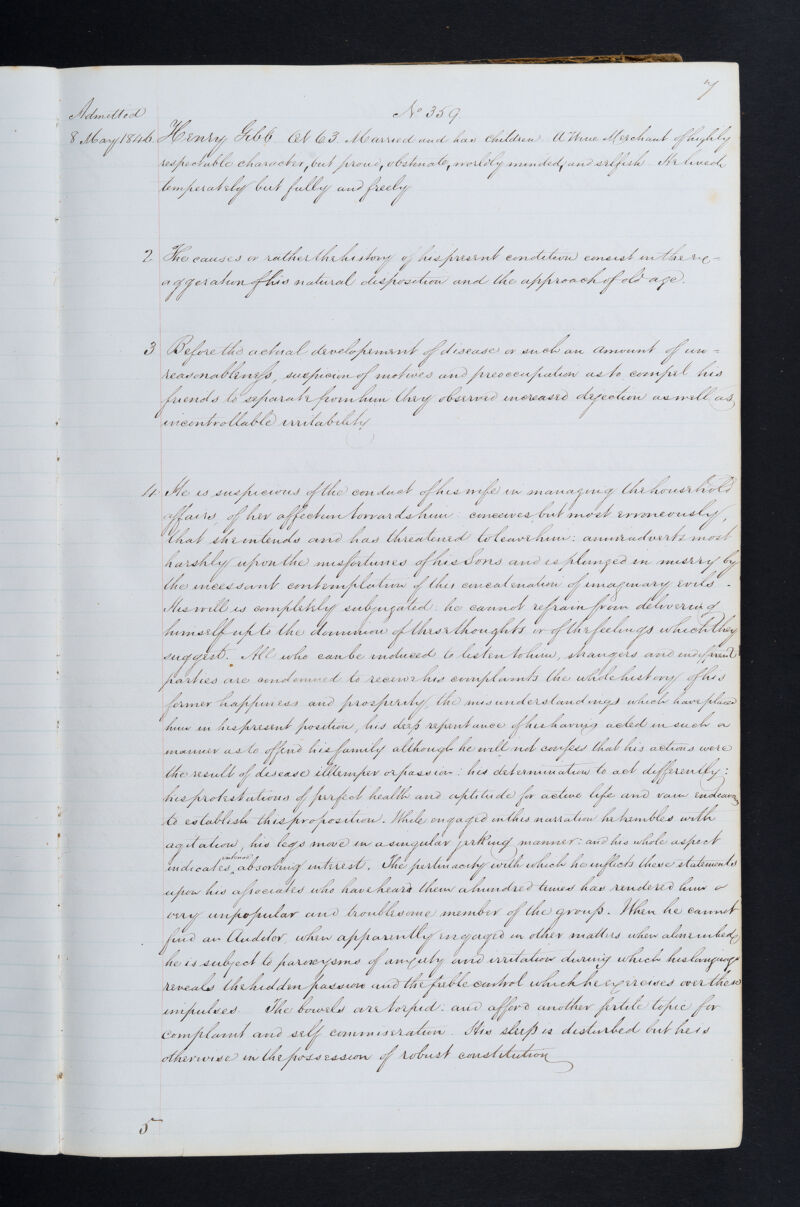 7
Admitted
No 359
8 May 1846 Henry Gibb Æt 63. Married and has children A Wine Merchant of highly
respectable character, but proud, obstinate, worldly minded, and selfish. He lived
temperately but fully and freely
2 The causes or rather the history of his present condition consist in the ex=
aggeration of his natural disposition and the approach of old age.
3 Before the actual developement of disease or such an amount of un=
reasonableness, suspicion of motives and preoccupation as to compel his
friends to separate from him they observed increased dejection as well as
incontrollable irritability
4 He is suspicious of the conduct of his wife in managing the household
affairs, of her affection towards him: conceives, but most erroneously,
that she intends and has threatened to leave him: animadverts most
harshly upon the misfortunes of his Sons and is plunged in misery by
the incessant contemplation of this concatenation of imaginary evils -
His will is completely subjugated: he cannot refrain from delivering
himself up to the dominion of these thoughts or of the feelings which they
suggest. All who can be induced to listen to him, strangers and indifferent
parties are condemned to receive his complaints the whole history of his
former happiness and prosperity, the misunderstandings which have placed
him in his present position, his deep repentance of his having acted in such a
manner as to offend his family although he will not confess that his actions were
the result of disease illtemper or passion: his determination to act differently:
his protestations of perfect health and aptitude for active life and vain endeavor
to establish this proposition. While engaged in this narration he trembles with
agitation, his legs move in a singular jerking manner: and his whole aspect
indicates intense absorbing interest. The pertinacity with which he inflicts these statements
upon his associates who have heard them a hundred times has rendered him a
very unpopular and troublesome member of the group. When he cannot
find an Auditor, when apparently engaged in other matters when alone in bed,
he is subject to paroxysms of anxiety and irritation during which his language
reveals the hidden passion and the feeble control which he exercises over these
impulses. The bowels are torpid: and afford another fertile topic for
complaint and self commiseration. His sleep is disturbed but he is
otherwise in the possession of robust constitution
5